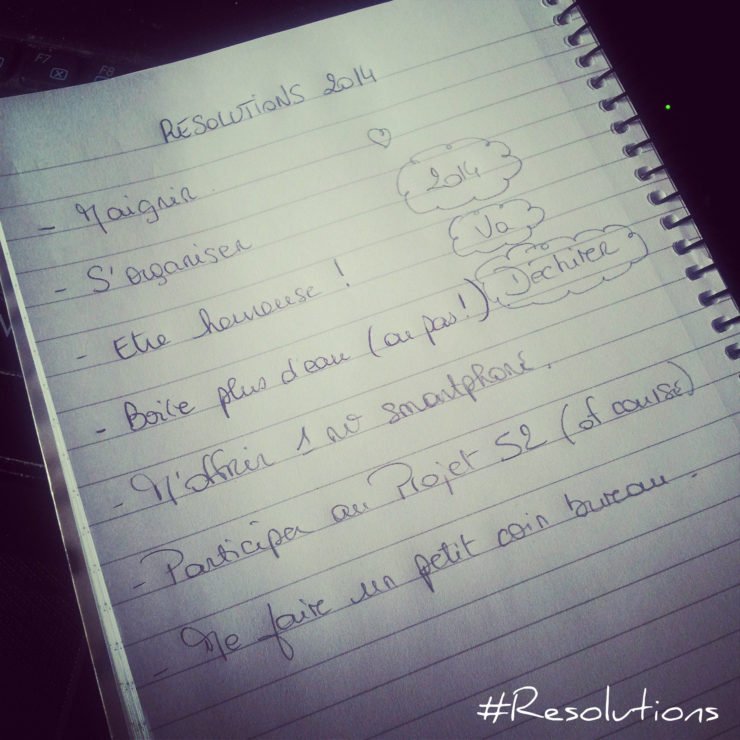 F7
F8
RESOLUTIONS 2014
- Maigrir
2014
- S'organiser
Va
- Etre heureuse !
Déchirer
- Boire plus d'eau (ou pas !)
- M'offrir 1 nv smartphone.
- Participer au Projet 52 (of course)
- Me faire un petit coin bureau.
#Resolutions